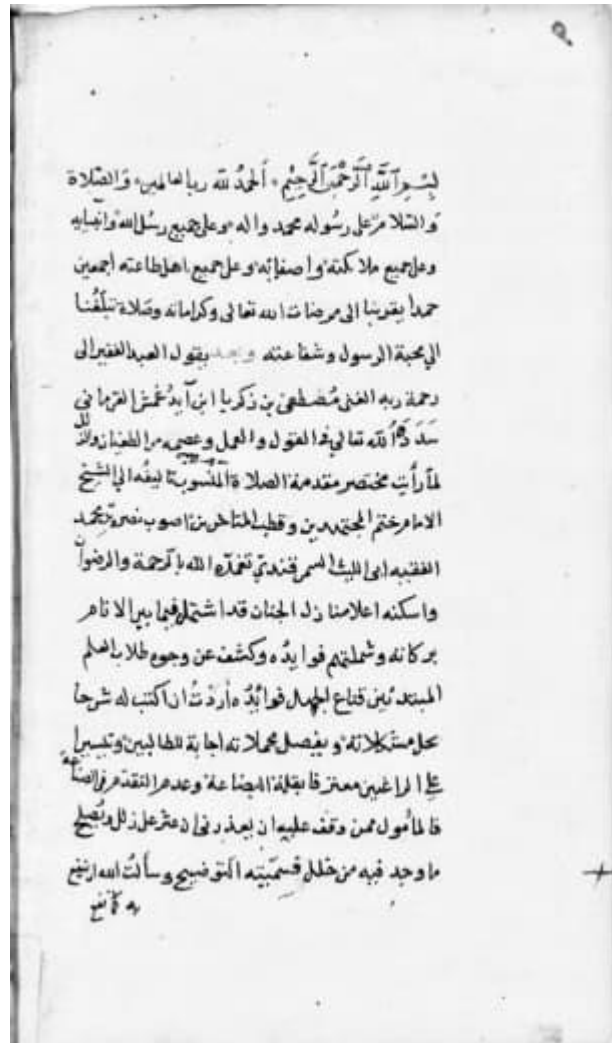 بِسْمِ ٱللَّهِ ٱلرَّحْمٰنِ ٱلرَّحِيْمِ ألحمدُ لله رب العالمين والصّلاة
والسّلام على رسُوله محمد واله وعلى جميع رسُل الله وانبيايه
وعلى جميع ملائكته واصفيائه وعلى جميع اهل طاعته اجمعين
حمدا يقربنا الى مرضات الله تعالى وكراماته وصَلاة تبلّغُنا
الى محبة الرسول وشفاعته وبعد يقول العبد الفقير الى
رحمة ربه الغنى مُصْطفى بن زكريا ابن آيدُغمش القرمانى
سَدّدهُ الله تعالي فى القول والعمل وعصمه من الطغيان والزلل
لمّا رأيت مختصر مقدمة الصلاة المَنْسوبة تاليفُه الي الشيخ
الامام ختم المجتهدين وقطب المتاخرين نصر بن محمد
الفقيه ابى الليث السمرقندي تغمّده الله بالرحمة والرضوان
واسكنه اعلا منازل الجنان قد اشتهر فيما بين الانام
بركاته وشملتهم فوايدُه وكشف عن وجوه طلاب العلم
المبتدئين قناع الجهل فوائدُه أردْتُ ان اكتب له شرحا
يحل مشكلاته ويفصل مجملاته اجابة للطالبين وتيسيرا
على الراغبين معترفا بقلة البضاعة وعدم التقدّم فى الصناعة
فالمأمول ممن وقف عليه ان يعذرنى ان عثر على زلل ويُصلح
ما وجد فيه من خلل فسمّيته التوضيح وسألتُ الله ان ينفع
به كما نفع